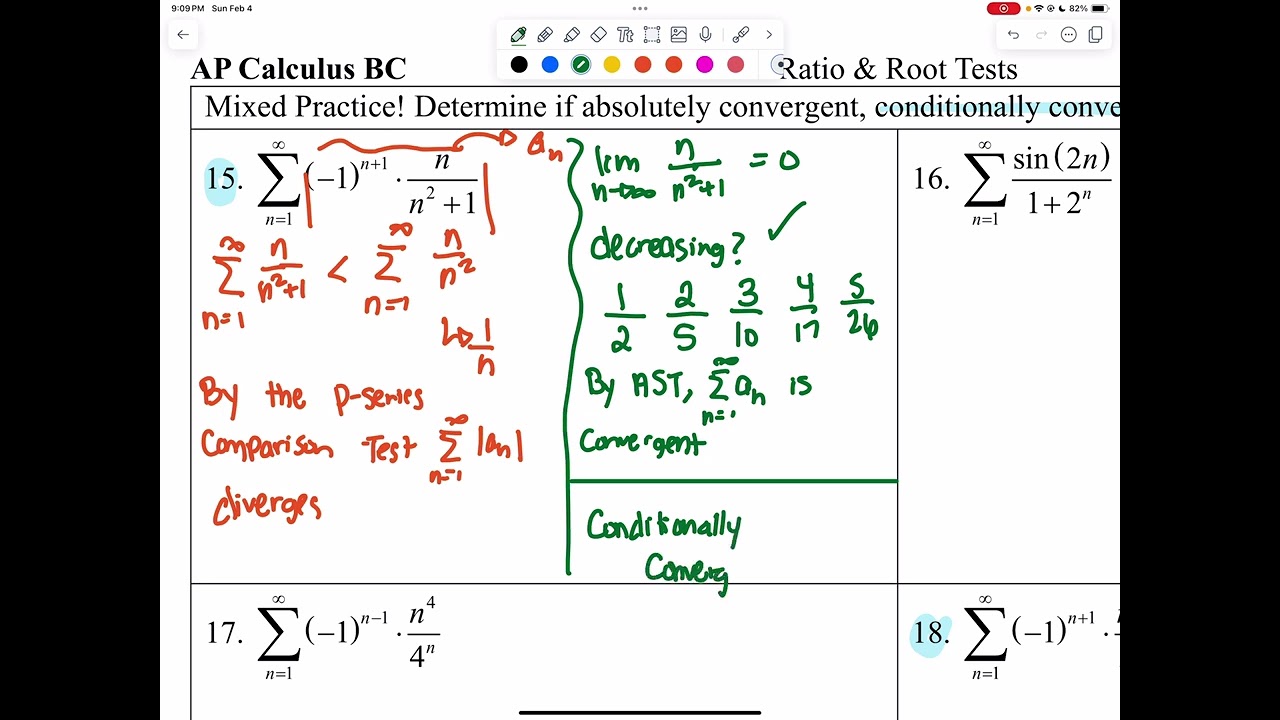 9:09 PM Sun Feb 4
82%
AP Calculus BC
Ratio & Root Tests
Mixed Practice! Determine if absolutely convergent, conditionally conve
15. ∞ ∑ n=1 (−1)^{n+1} · n / (n² + 1)
→ aₙ
∞ ∑ n=1 n/(n²+1) < ∞ ∑ n=1 n/n²
↳ 1/n
By the p-series
Comparison Test ∞ ∑ n=1 |aₙ|
diverges
lim n→∞ n/(n²+1) = 0
decreasing? ✓
1/2 2/5 3/10 4/17 5/26
By AST, ∞ ∑ n=1 aₙ is
Convergent
Conditionally
Converg
16. ∞ ∑ n=1 sin(2n) / (1+2ⁿ)
17. ∞ ∑ n=1 (−1)^{n−1} · n⁴/4ⁿ
18. ∞ ∑ n=1 (−1)^{n+1} ·